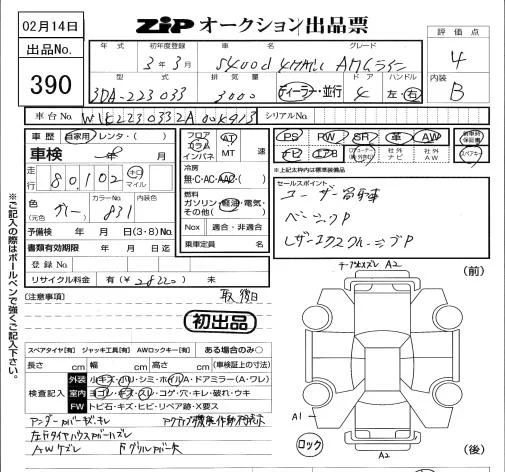 02月14日
出品No.
390
ZIP オークション出品票
評価点
4
内装
B
年式 初年度登録 車名 グレード
3年3月 S400d 4MATIC AMGライン
型式 排気量 ドア ハンドル
3DA-223033 3000 ディーラー・並行 4 左・右
車台No. シリアルNo.
車歴 自家用・レンタ・( )
車検 年 月
走行 80,102 キロ マイル
色 (元色) グレー カラーNo. 831 内装色
予備検 年 月 日(3・8)No.
書類有効期限 年 月 日迄
登録No.
リサイクル料金 有(¥ ) 未
フロア コラム インパネ AT MT 速
冷房 無・C・AC・AAC・( )
燃料 ガソリン・軽油・電気・その他( )
Nox 適合・非適合
乗車定員 名
PS PW SR 革 AW 新車時保証書
ナビ エアB 社外ナビ 社外AW スペアキー
※上記太枠内は標準装備品
セールスポイント
ユーザー買取車
ベーシックP
レザーエクスクルーシブP
※ご記入の際はボールペンで強くご記入下さい。
(注意事項)
初出品
スペアタイヤ[有] ジャッキ工具[有] AWロックキー[有] ある場合のみ○
長さ cm 幅 cm 高さ cm (車検証上の寸法)
検査記入
外装 小キズ・小凹・シミ・ホイル(A・ドアミラー(A・ワレ)
室内 ヨゴレ・キズ・スレ・コゲ・穴・キレ・破れ・ウキ
FW トビ石・キズ・ヒビ・リペア跡・X要ス
アンダーカバーキズ、キレ
左Fタイヤハウスカバーハズレ
AWケズレ
A2
(前)
A1
ロック
A2
(後)